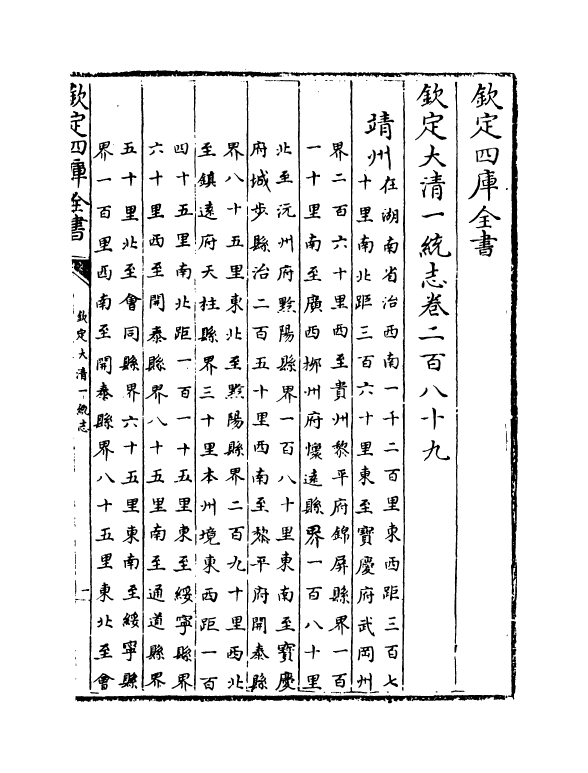 欽定四庫全書
欽定大清一統志卷二百八十九
靖州
在湖南省治西南一千二百里東西距三百七
十里南北距三百六十里東至寶慶府武岡州
界二百六十里西至貴州黎平府錦屏縣界一百
一十里南至廣西栁州府懷遠縣界一百八十里
北至沅州府黔陽縣界一百八十里東南至寶慶
府城步縣治二百五十里西南至黎平府開泰縣
界八十五里東北至黔陽縣界二百九十里西北
至鎮遠府天柱縣界三十里本州境東西距一百
四十五里南北距一百一十五里東至綏寧縣界
六十里西至開泰縣界八十五里南至通道縣界
五十里北至會同縣界六十五里東南至綏寧縣
界一百里西南至開泰縣界八十五里東北至會
欽定四庫全書
欽定大清一統志
一